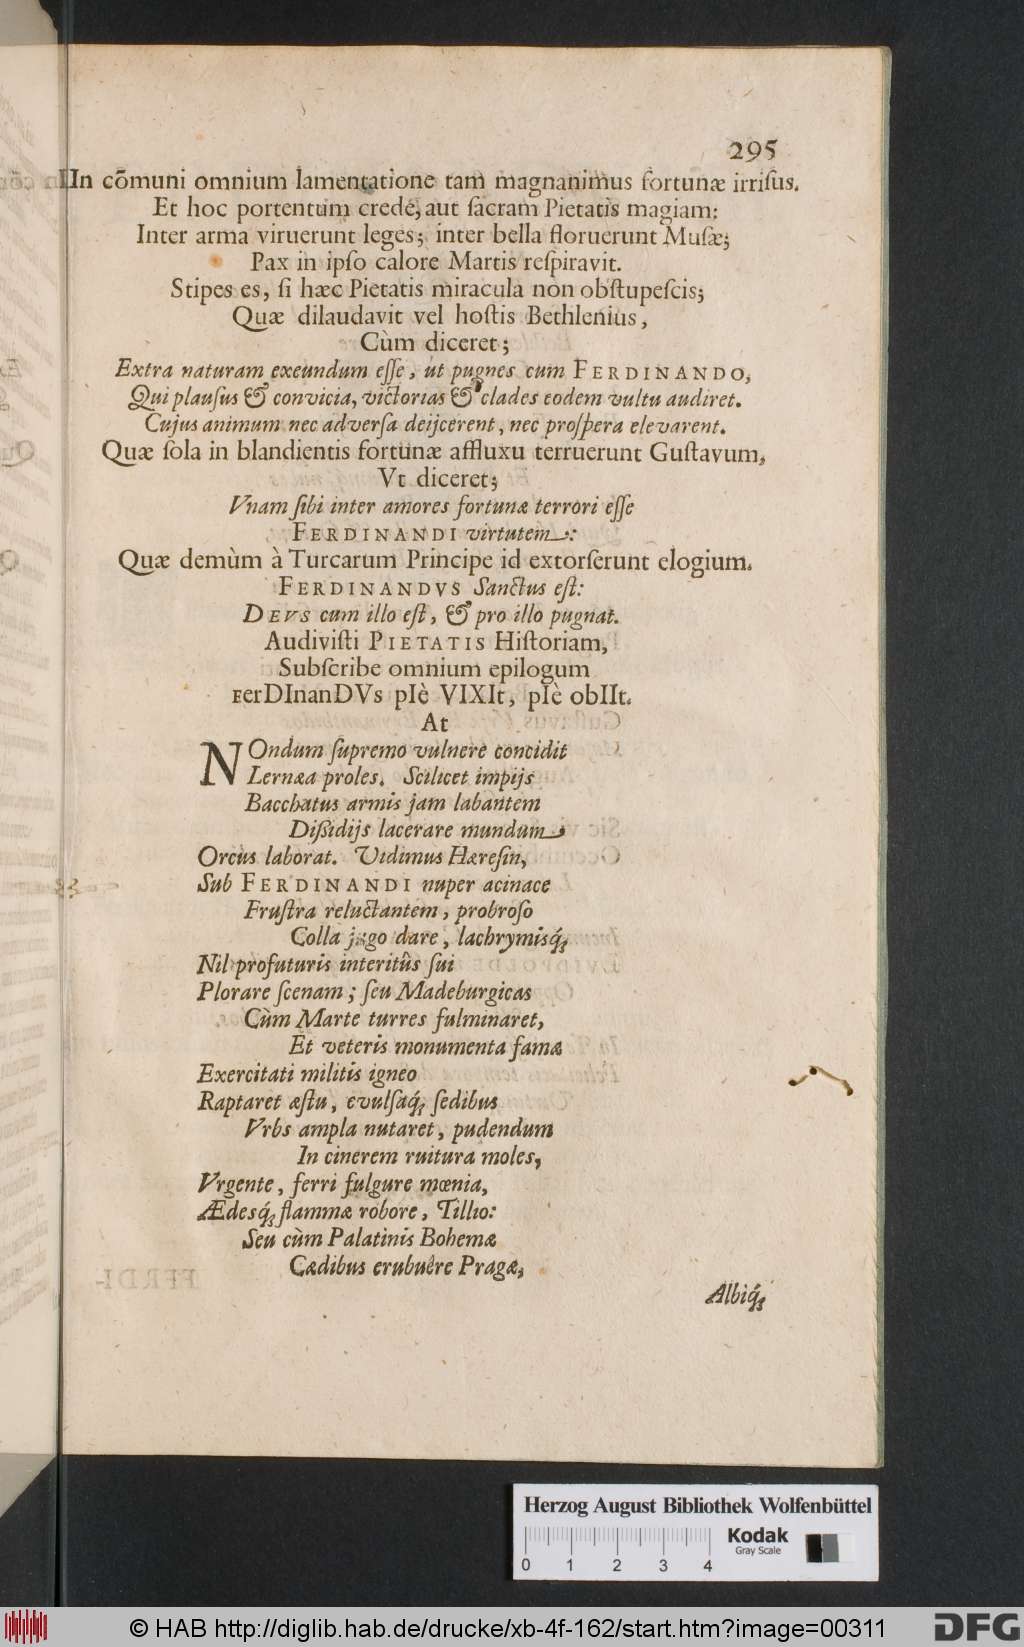 295
In cōmuni omnium lamentatione tam magnanimus fortunæ irriſus.
Et hoc portentum crede, aut ſacram Pietatis magiam:
Inter arma viruerunt leges; inter bella floruerunt Muſæ;
Pax in ipſo calore Martis reſpiravit.
Stipes es, ſi hæc Pietatis miracula non obſtupeſcis;
Quæ dilaudavit vel hoſtis Bethlenius,
Cùm diceret;
Extra naturam exeundum eſſe, ut pugnes cum FERDINANDO,
Qui plauſus & convicia, victorias & clades eodem vultu audiret.
Cujus animum nec adverſa deijcerent, nec proſpera elevarent.
Quæ ſola in blandientis fortunæ affluxu terruerunt Guſtavum,
Vt diceret;
Vnam ſibi inter amores fortunæ terrori eſſe
FERDINANDI virtutem:
Quæ demùm à Turcarum Principe id extorſerunt elogium.
FERDINANDVS Sanctus eſt:
DEVS cum illo eſt, & pro illo pugnat.
Audiviſti PIETATIS Hiſtoriam,
Subſcribe omnium epilogum
FerDInanDVs pIè VIXIt, pIè obIIt.
At
NOndum ſupremo vulnere concidit
Lernæa proles. Scilicet impijs
Bacchatus armis jam labantem
Dißidijs lacerare mundum
Orcus laborat. Vidimus Hæreſin,
Sub FERDINANDI nuper acinace
Fruſtra reluctantem, probroſo
Colla jugo dare, lachrymisq́;
Nil profuturis interitûs ſui
Plorare ſcenam; ſeu Madeburgicas
Cùm Marte turres fulminaret,
Et veteris monumenta famæ
Exercitati militis igneo
Raptaret æſtu, evulſaq́; ſedibus
Vrbs ampla nutaret, pudendum
In cinerem ruitura moles,
Vrgente, ferri fulgure mœnia,
Ædesq́; flammæ robore, Tillio:
Seu cùm Palatinis Bohemæ
Cædibus erubuêre Pragæ,
Albiq́;
Herzog August Bibliothek Wolfenbüttel
Kodak
Gray Scale
0 1 2 3 4
© HAB http://diglib.hab.de/drucke/xb-4f-162/start.htm?image=00311
DFG